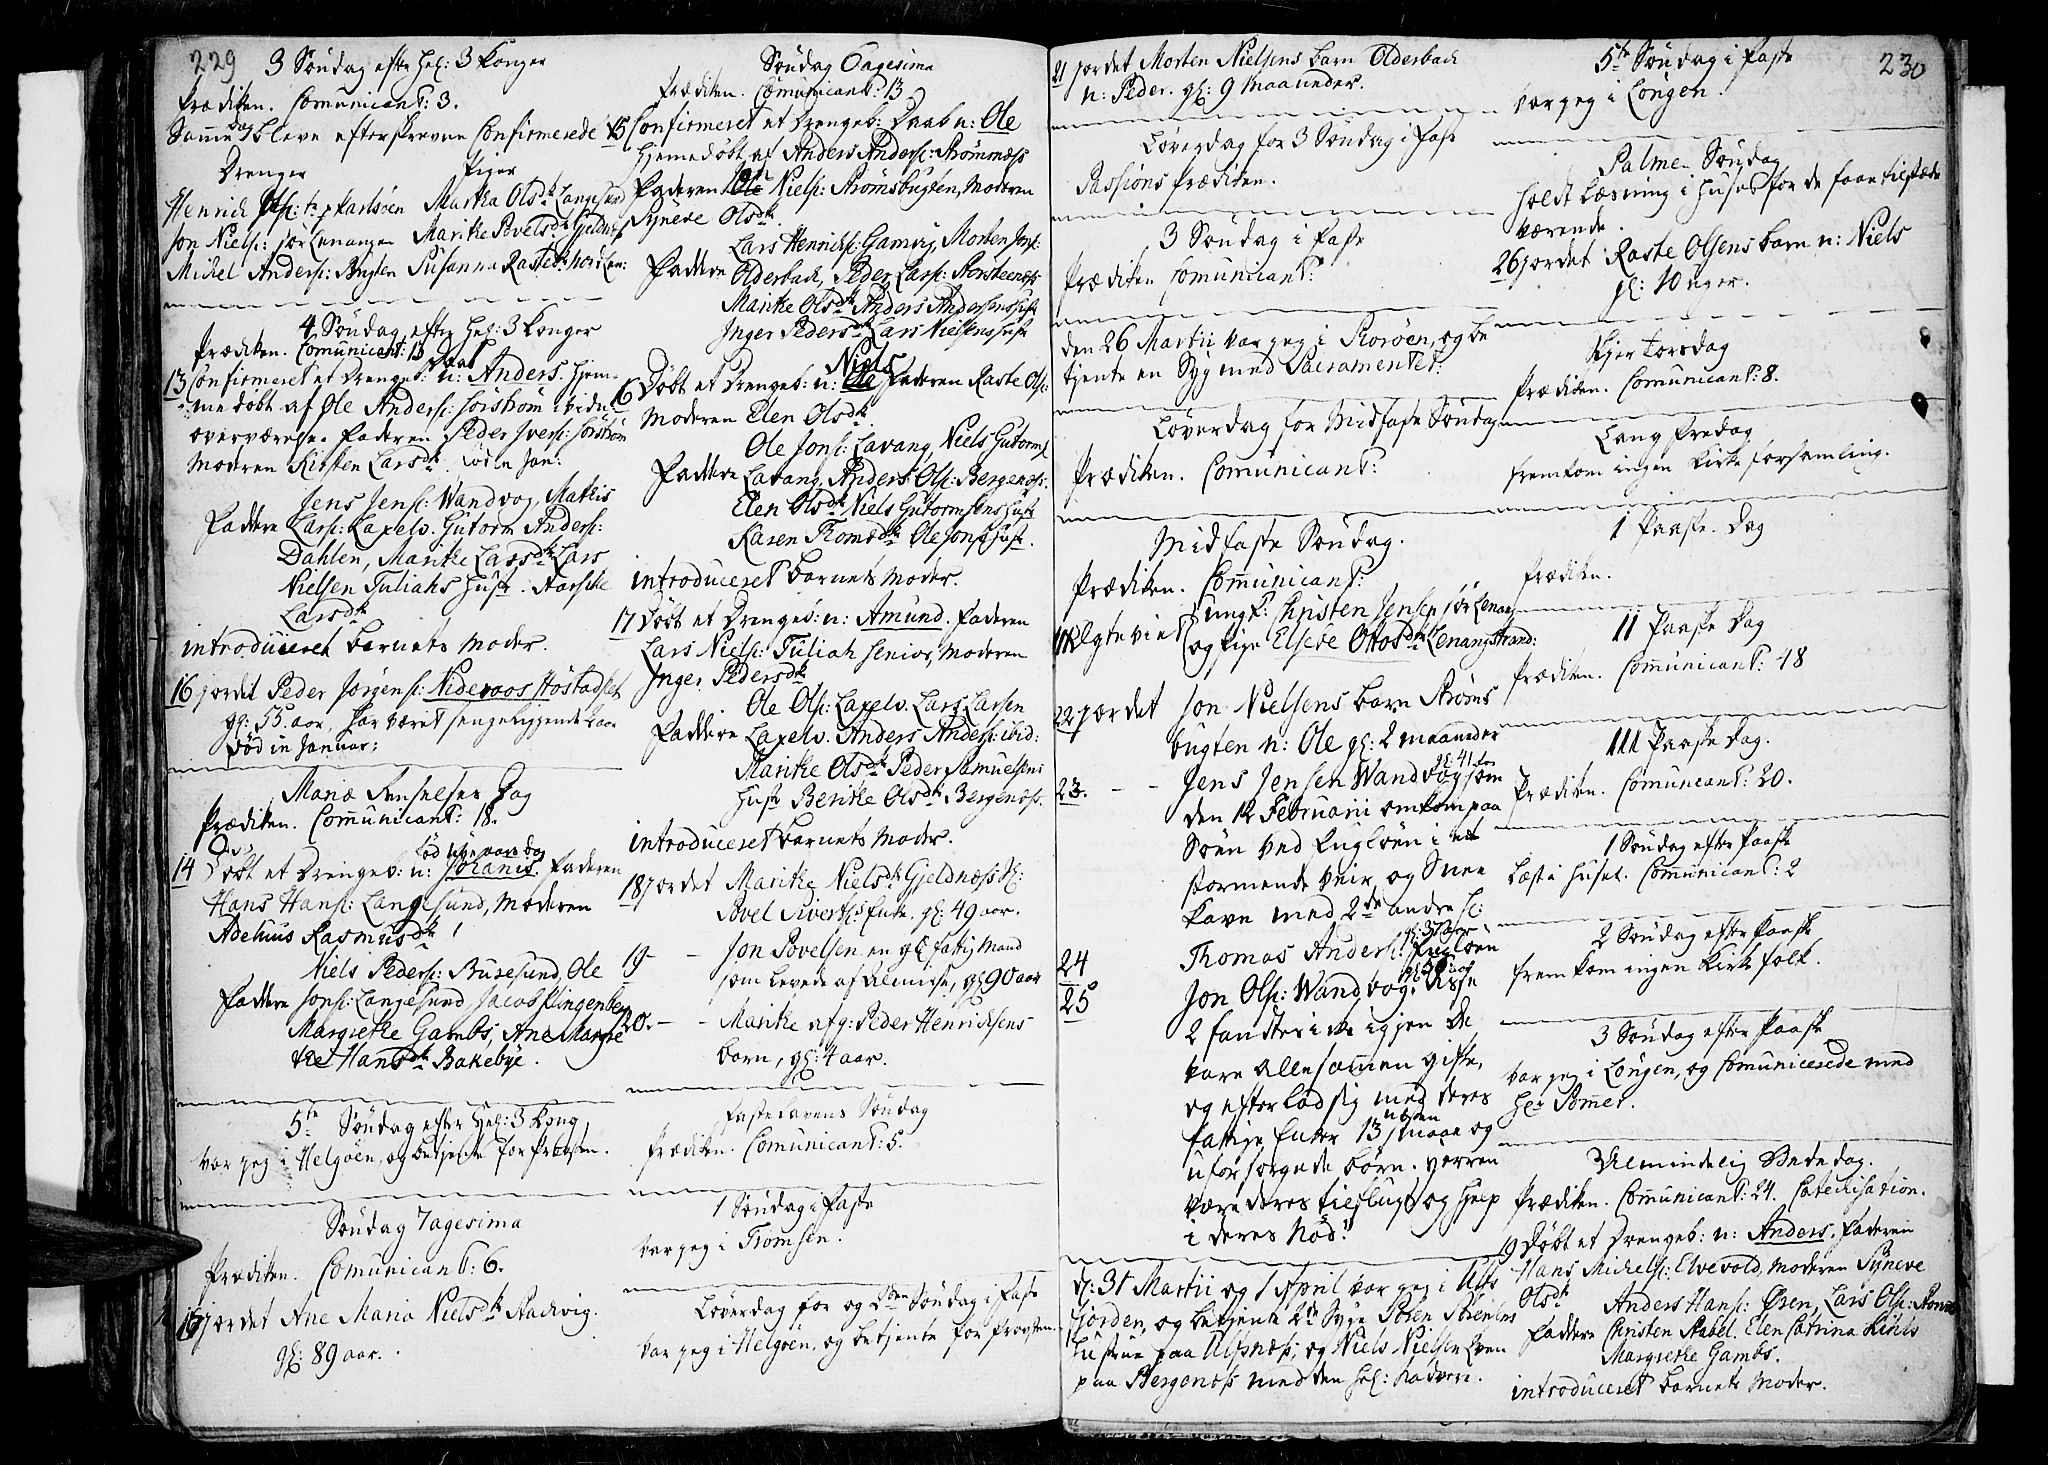 229
3 Søndag efter Hel: 3 Konger
Prædiken. Comunicant: 3.
Samme dag bleve efterskrevne Confirmerede
Drenger Piger
Henrich Karlsøen Martha Olsdtr Langesund
Jon Niels: sør Lenangen Marithe Povelsdtr Gjeldnæs
Michel Anders: Bugten Susanna Rastedtr Nord Len:
4 Søndag efter Hel: 3 Konger
Prædiken. Comunicant: 13
13 Confirmeret et Drengeb: Daab n: Anders. Hjem-
me døbt af Ole Anders: Sørstrøm ibid:
overværelse. Faderen Peder Ivers: Sørstrøm
Moderen Kirsten Larsdtr. Død in Jan:
Jens Jens: Wandvog, Mathis
Faddere Lars: Laxelv. Gutorm Anders:
Dahlen, Marithe Larsdtr Lars
Nielsen Tuliahs Hustr.
Larsdtr
introduceret barnets Moder.
16 jordet Peder Jørgens: Nideroos Høstadslet
gl: 55 aar, har været sengeliggende
død in Januar:
Mariæ Renselses Dag
Prædiken. Communicant: 18.
14 Døbt et Drengeb: n: Johanis. Faderen
Hans Hans: Langesund, Moderen
Adelius Rasmusdtr
Niels Peders: Burøesund, Ole
Faddere Jons: Langesund, Jacob Klingenberg
Margrethe Gambs, Ane Margre
the Hansdtr Bakebye.
5te Søndag efter Hel: 3 Kong
var jeg i Helgøen, og betjente for Provsten.
Søndag 7agesima
Prædiken. Comunicant: 6.
15 jordet Ane Maria Nielsdtr Stachvig.
gl: 89 aar.
Søndag 6agesima
Prædiken. Comunicant: 13
15 Confirmeret et Drengeb: Daab n: Ole
hjemedøbt af Anders Anders: Strømnæss
Faderen Jon Niels: Strømsbugten, Moderen
Syneve Olsdtr.
Lars Henrichs: Gamvig, Morten Jons:
Faddere Olderbach, Peder Lars: Storsteenæs
Marithe Olsdtr Anders Andersens Hustr
Inger Pedersdtr Lars Nielsens Hustr
16 Døbt et Drengeb: n: Niels Faderen Raste Ols:
Moderen Elen Olsdtr.
Ole Jons: Lavang, Niels Gutorms
Faddere Lavang, Anders Ols: Bergenæs.
Elen Olsdtr Niels Gutormsens Hustr
Karen Thomædtr Ole Jons Hustr.
introduceret barnets Moder.
17 Døbt et Drengeb: n: Amund. Faderen
Lars Niels: Tuliah senior, Moderen
Inger Pedersdtr
Ole Ols: Laxelv. Lars Larsen
Faddere Laxelv. Anders Anders: ibid:
Marithe Olsdtr Peder Samuelsens
Hustr Berithe Olsdtr Bergenæss.
introduceret barnets Moder.
18 jordet Marithe Nielsdtr Gjeldnæss Sl:
Povel Siverts: Enke. gl: 49 aar.
19 - - Jon Povelsen en gl: fattig Mand
som levede af Almisse, gl: 90 aar
20. - - Marithe afg: Peder Henrichsens
barn, gl: 4 aar.
Fastelavens Søndag
Prædiken. Comunicant: 5.
1 Søndag i Faste
var jeg i Tromsen.
Løverdag for og 2den Søndag i Faste
var jeg i Helgøen, og betjente for Provsten.
21 jordet Morten Nielsens barn Olderbach
n: Peder. gl: 9 Maaneder.
Løverdag for 3 Søndag i Faste
Passions Prædiken.
3 Søndag i Faste
Prædiken Comunicant:
den 26 Martii var jeg i Karøen, og be
tjente en Syg med Sacramentet:
Løverdag for Midfaste Søndag
Prædiken. Comunicant:
Midfaste Søndag.
Prædiken. Communicant:
Ægteviet Ungk: Christen Jensen sør Lenang
og Pige Elsebe Ottosdtr Lenangstrand:
22 jordet Jon Nielsens barn Strøms
bugten n: Ole gl: 2 maaneder
23. - - Jens Jensen Wandvog gl: 41 aar som
den 12 Februarii omkom paa
Søen ved Fugløen i et
stormende Veir og Snee
Kave med 2de andre sl:
24 Thomas Anders: Fugløen
25 Jon Ols: Wandvog. Disse
2 fandtes ikke igjen De
vare allesammen gifte,
og efterlod sig med deres
fattige Enker 13 smaae og
uforsørgede børn. Herren
være deres tilflugt og Hjelp
i deres Nød!
d: 31 Martii og 1 April var jeg i Ulfs
fjorden, og betjente 2de Syge Søren Sørensens
Hustrue paa Ulfsnæss, og Niels Nielsen
paa Bergenæss med den Hel: Nadvere.
230
5te Søndag i Faste
var jeg i Longen.
Palme Søndag
holdt Læsning i Huset for de faae tilstæde
værende.
26 jordet Raste Olsens barn n: Niels
gl: 10 uger.
Skjer Torsdag
Prædiken. Comunicant: 8.
Lang Fredag
fremkom ingen Kirke forsamling.
1 Paaske Dag
Prædiken.
II Paaske Dag
Prædiken. Communicant: 48
III Paaske Dag.
Prædiken. Comunicant: 20.
1 Søndag efter Paaske
Læst i Huset. Communicant: 2
2 Søndag efter Paaske
fremkom ingen Kirkefolk.
3 Søndag efter Paaske
var jeg i Longen, og Comunicerede med
Hr Sømer.
Almindelig Bededag.
Prædiken. Communicant: 24. Catechisation.
19 Døbt et Drengeb: n: Anders. Faderen
Hans Michels: Elvevold, Moderen Syneve
Olsdtr Anders Hans: Øren, Lars Ols:
Faddere Christen Stabel. Elen Catrina Kiihls
Margrethe Gambs.
introduceret barnets Moder.